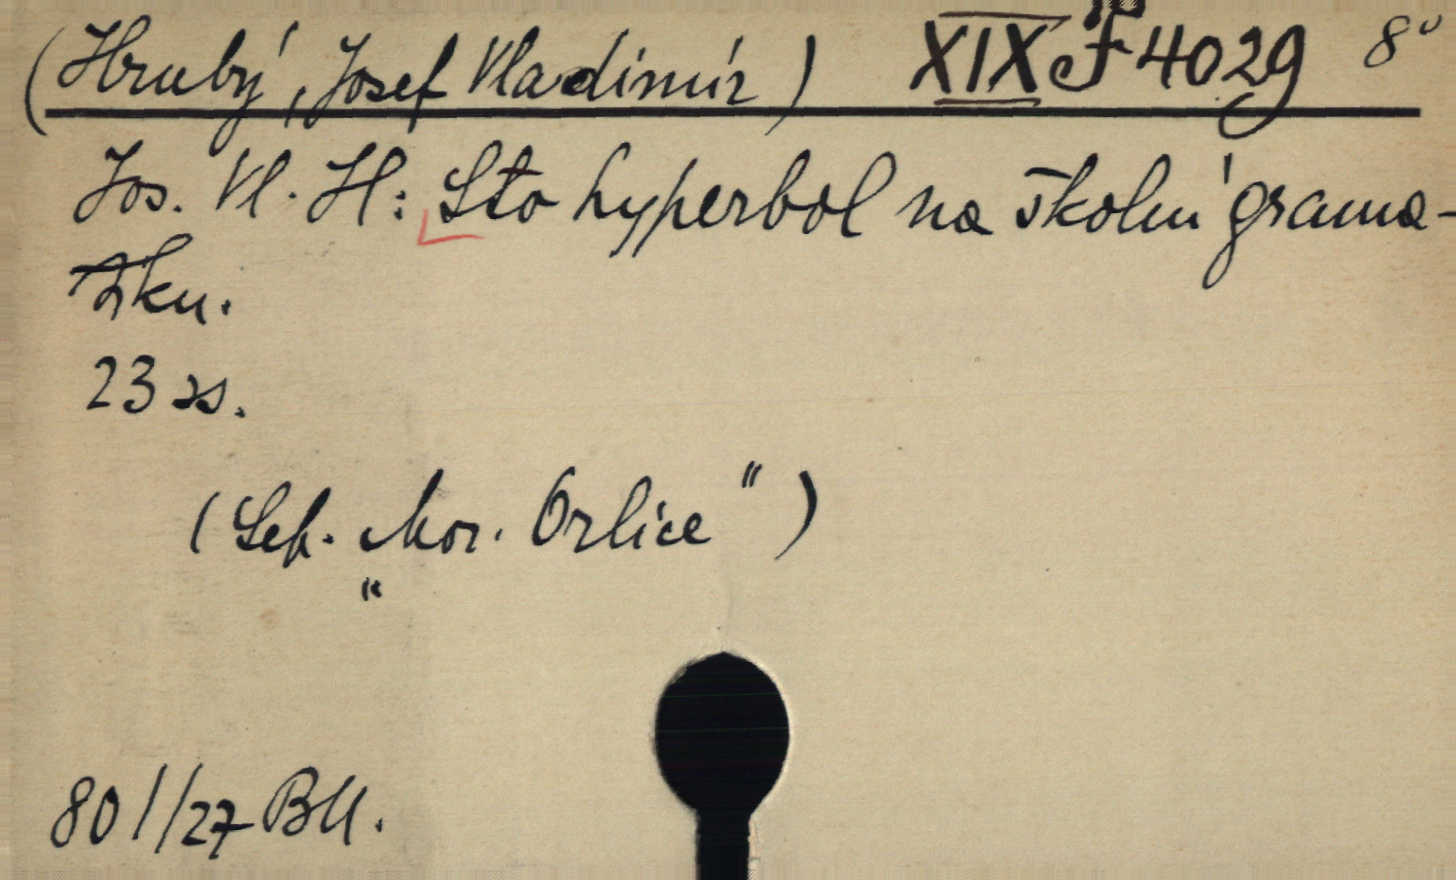 (Hrubý, Josef Vladimír) XIX F 4029 8°
Jos. Vl. H: Sto hyperbol na školní grama-
tiku.
23 ss.
(Sep. „Mor. Orlice“)
801/27 BU.